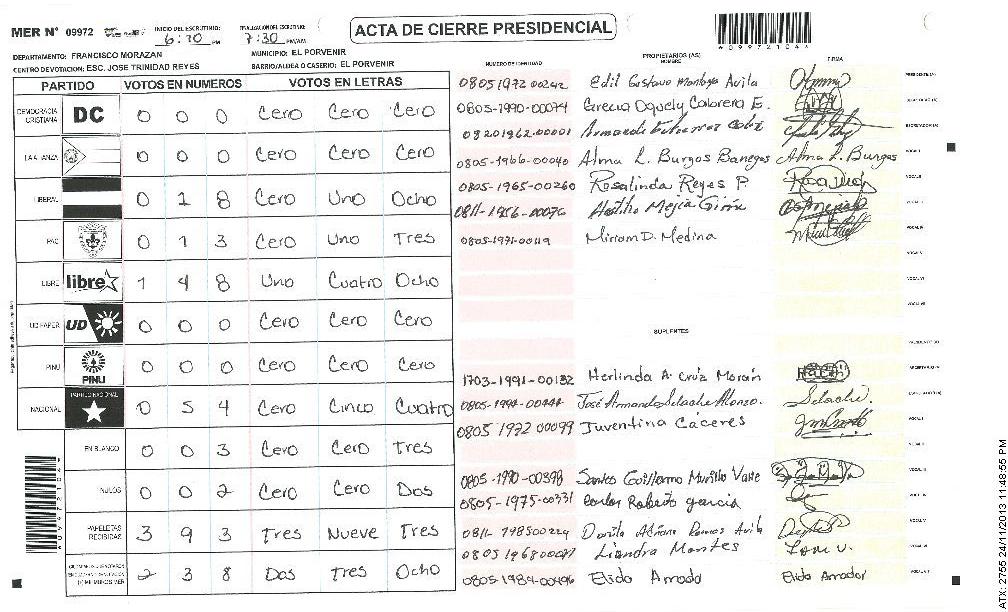 MER N° 09972 INICIO DEL ESCRUTINIO: 6:10 PM FINALIZACION DEL ESCRUTINIO: 7:30 PM/AM
ACTA DE CIERRE PRESIDENCIAL
DEPARTAMENTO: FRANCISCO MORAZAN MUNICIPIO: EL PORVENIR
CENTRO DE VOTACION: ESC. JOSE TRINIDAD REYES BARRIO/ALDEA O CASERIO: EL PORVENIR
PARTIDO VOTOS EN NUMEROS VOTOS EN LETRAS
DEMOCRACIA CRISTIANA DC 0 0 0 Cero Cero Cero
LA ALIANZA 0 0 0 Cero Cero Cero
LIBERAL 0 1 8 Cero Uno Ocho
PAC 0 1 3 Cero Uno Tres
LIBRE libre 1 4 8 Uno Cuatro Ocho
UD FAPER UD 0 0 0 Cero Cero Cero
PINU PINU 0 0 0 Cero Cero Cero
NACIONAL PARTIDO NACIONAL 0 5 4 Cero Cinco Cuatro
EN BLANCO 0 0 3 Cero Cero Tres
NULOS 0 0 2 Cero Cero Dos
PAPELETAS RECIBIDAS 3 9 3 Tres Nueve Tres
2 3 8 Dos Tres Ocho
NUMERO DE IDENTIDAD PROPIETARIOS (AS) NOMBRE FIRMA
0805 1972 00242 Edil Gustavo Montoya Avila
0805-1990-00074 Grecia Dquely Cabrera E.
08201962.00001
0805-1966-00040 Alma L. Burgos Banegas Alma L. Burgos
0805-1965-00260 Rosalinda Reyes P.
0811-1956-00076 Mejia Girón
0805-1971-00119 Miriam D. Medina
SUPLENTES
1703-1991-00132 Herlinda A. Cruz Morán
José Armando Selache Alonzo. Selache.
0805 1972 00099 Juventina Cáceres
0805-1990-00398 Santos Guillermo Murillo Valle
0805-1975-00331 Carlos Roberto garcia
Ramos Avila
Liandra Montes
0805-1984-00496 Elido Amador Elido Amador
ATX: 2755 24/11/2013 11:48:55 PM